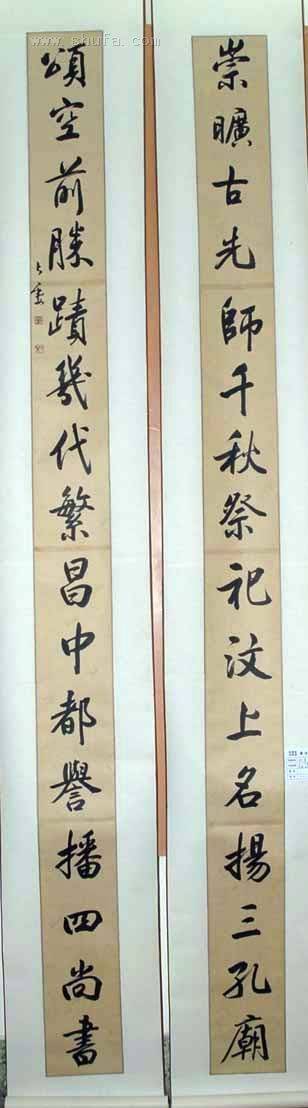 崇曠古先師千秋祭祀汶上名揚三孔廟
頌空前勝蹟幾代繁昌中都譽播四尚書
www.shufa.com